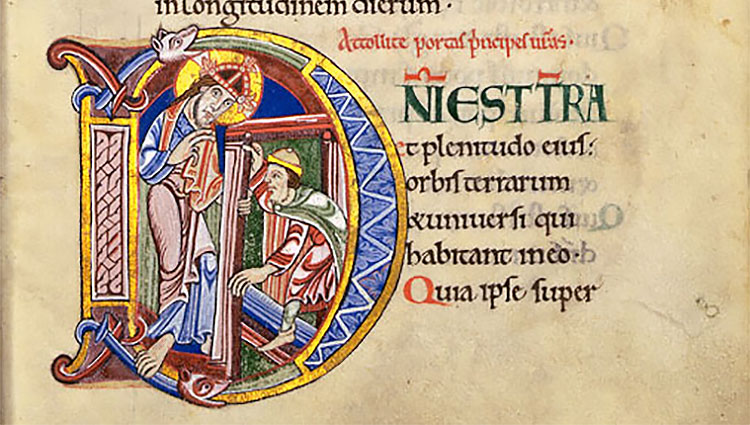 in longitudinem dierum.
Attollite portas principes uras.
DÑI EST TRA
et plenitudo eius:
orbis terrarum
& universi qui
habitant in eo.
Quia ipse super